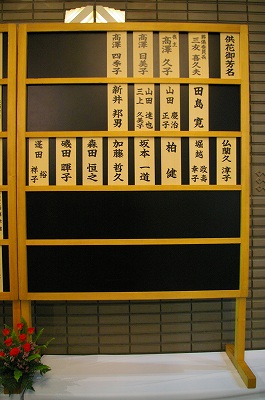 供花御芳名
葬儀委員長
三友 喜久夫
喪主
高澤 久子
高澤 日美子
高澤 四季子
田島 寛
山田 慶治
正子
山田 達也
三上 久美子
新井 邦男
仏蘭久 淳子
堀越 政寿
幸子
柏 健
坂本 一道
加藤 哲久
森田 恒之
磯田 輝子
蓮田 裕
祥子